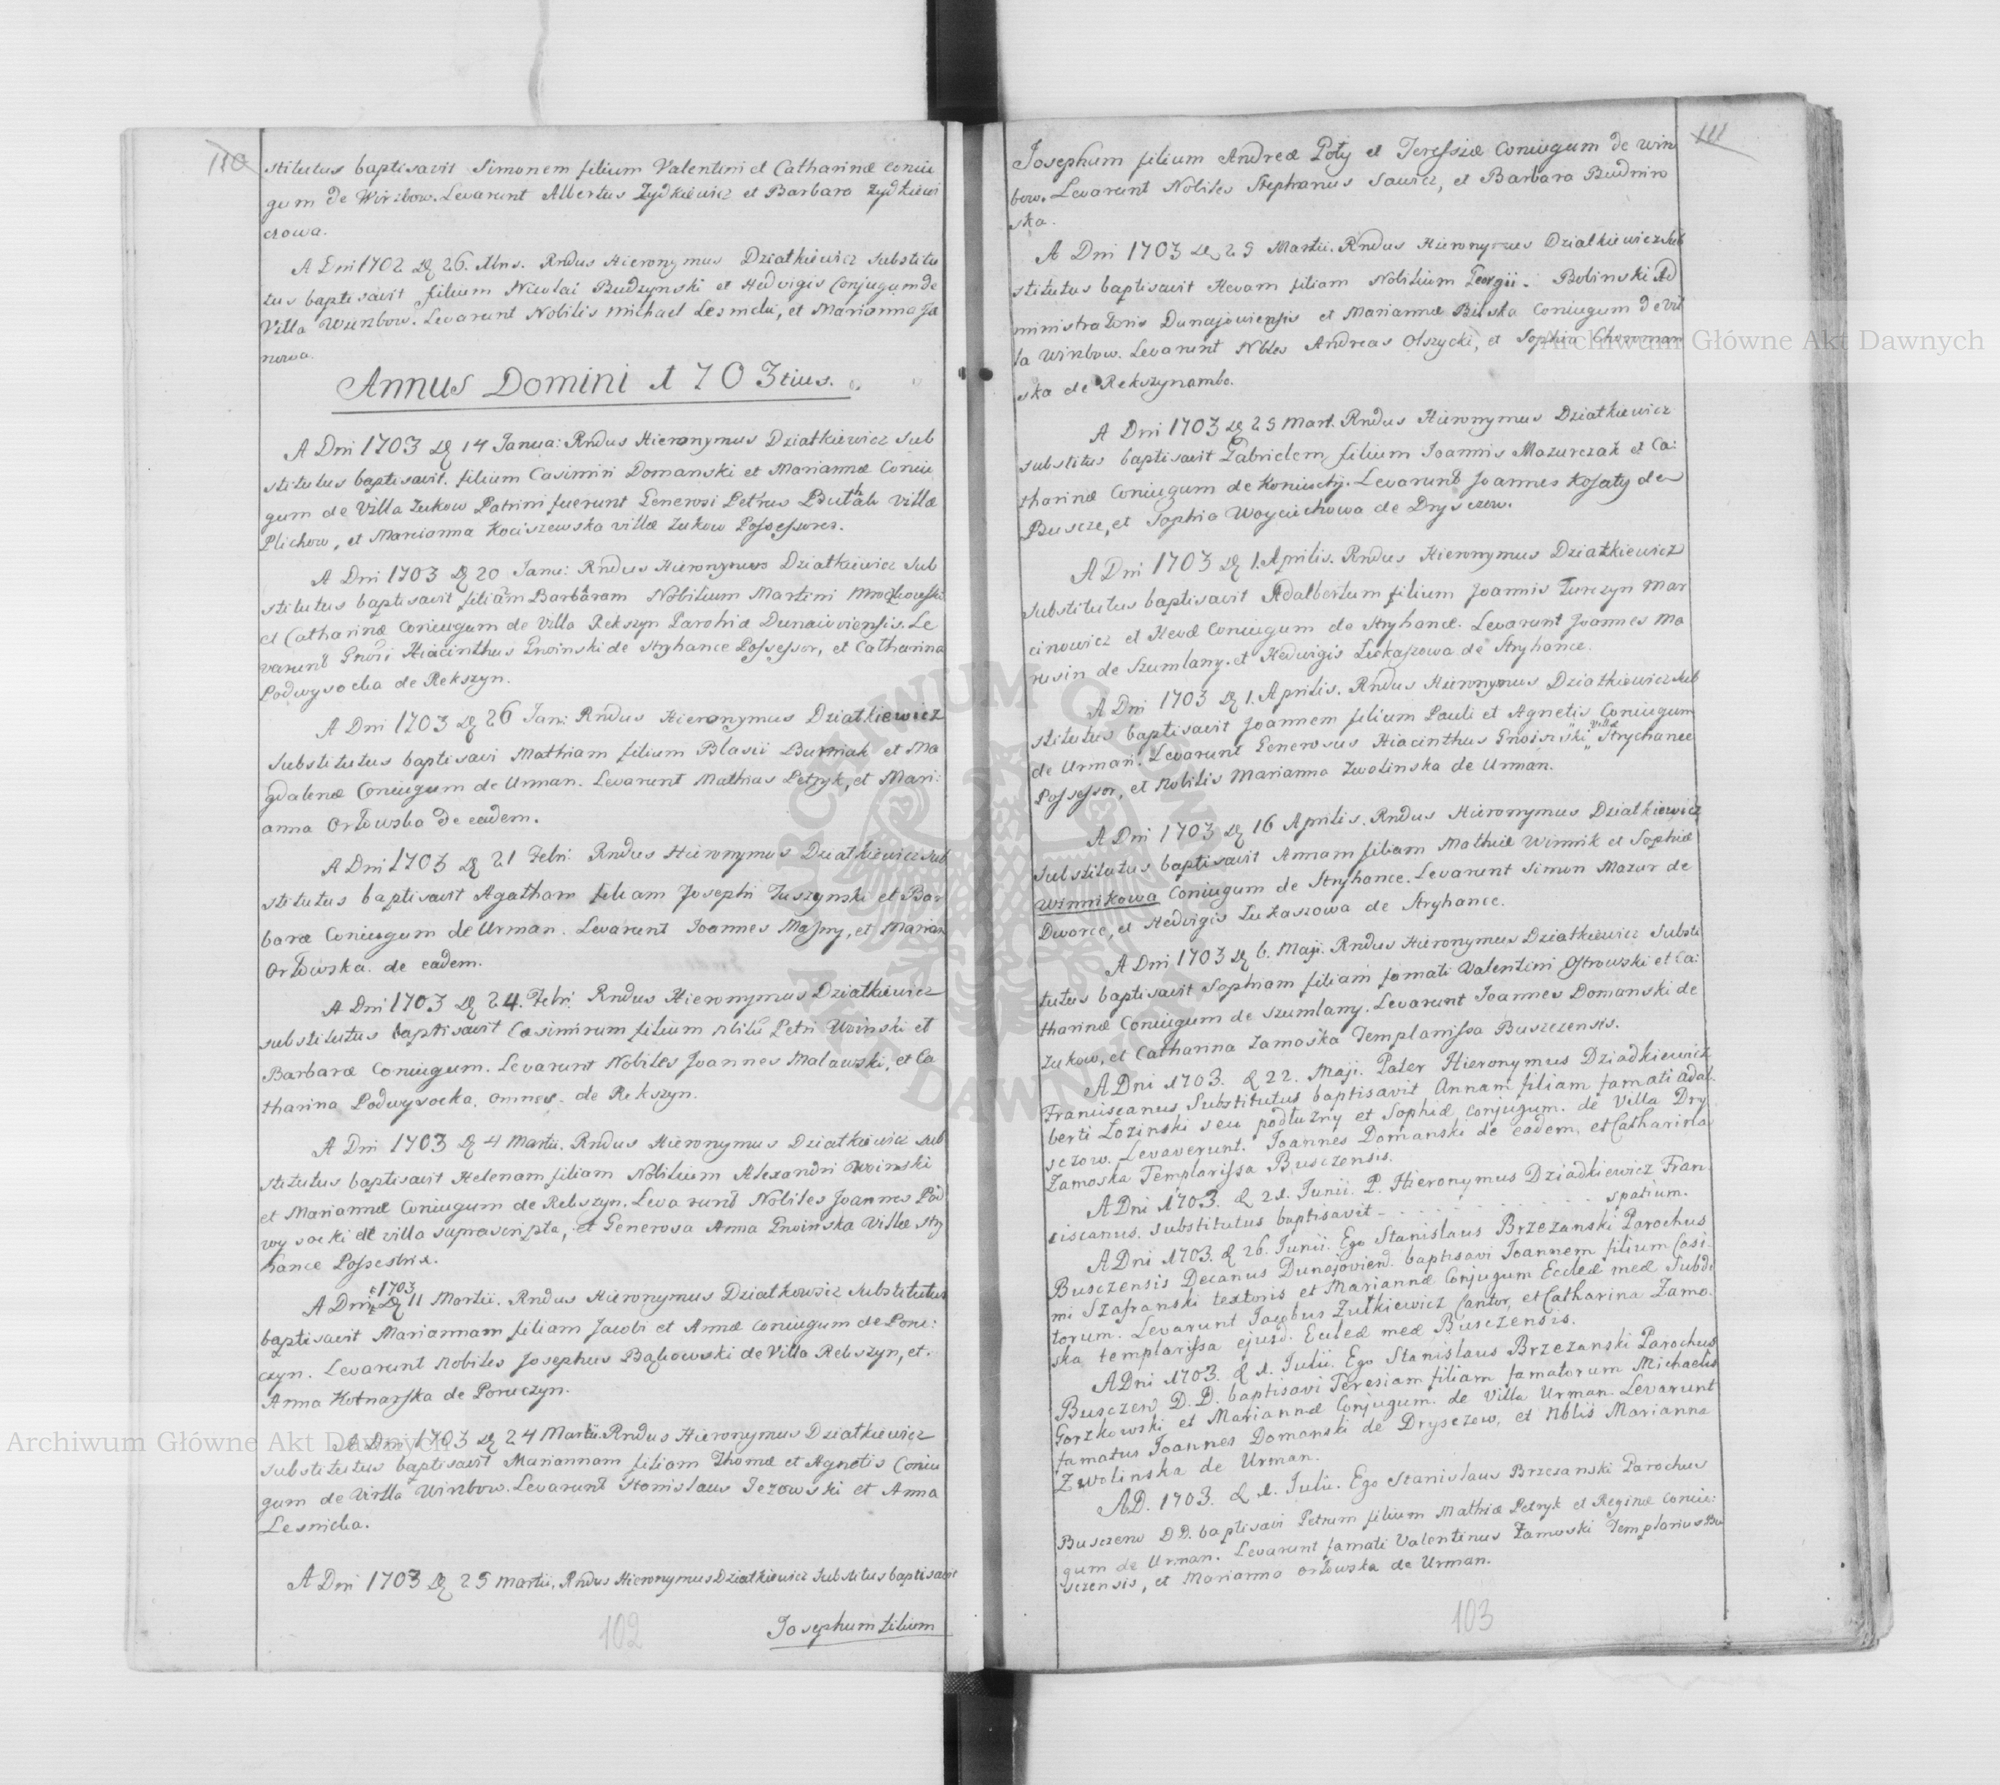 110
stitutus baptisavit Simonem filium Valentini et Catharinæ coniu
gum de Wirzbow. Levarunt Albertus Zydkiewicz et Barbara Zydkiewi
czowa.
A Dni 1702 26. Rndus Hieronymus Dziatkiewicz substitu
tus baptisavit filium Nicolai Budzynski et Hedvigis Conjugum de
Villa Wirzbow. Levarunt Nobilis Michael Lesnicki, et Marianna Ja
nowa.
Annus Domini 1703tius.
A Dni 1703 14 Janua: Rndus Hieronymus Dziatkiewicz sub
stitutus baptisavit. filium Casimiri Domanski et Mariannæ Coniu
gum de Villa Zukow Patrini fuerunt Generosi Petrus villæ
Plichow, et Marianna Kociszewska villæ Zukow Possessores.
A Dni 1703 20 Janu: Rndus Hieronymus Dziatkiewicz sub
stitutus baptisavit filiam Barbaram Nobilium Martini
et Catharinæ Coniugum de Villa Rekszyn Parohiæ Dunaioviensis. Le
varunt Gnosi Hiacinthus Gnoinski de Stryhance Possessor, et Catharina
Podwysocka de Rekszyn.
A Dni 1703 26 Jan: Rndus Hieronymus Dziatkiewicz
substitutus baptisavi Mathiam filium Blasii Burniak et Ma
gdalenæ Coniugum de Urman. Levarunt Mathias Petryk, et Mari:
anna Orłowska de eadem.
A Dni 1703 21 Febr: Rndus Hieronymus Dziatkiewicz sub
stitutus baptisavit Agatham filiam Josephi Tuszynski et Bar
baræ Coniugum de Urman. Levarunt Joannes Masny, et Marian
Orłowska. de eadem.
A Dni 1703 24. Febr: Rndus Hieronymus Dziatkiewicz
substitutus baptisavit Casimirum filium Petri Woinski et
Barbaræ Coniugum. Levarunt Nobiles Joannes Malawski, et Ca
tharina Podwysocka. omnes. de Rekszyn.
A Dni 1703 4 Martii. Rndus Hieronymus Dziatkiewicz sub
stitutus baptisavit Helenam filiam Nobilium Alexandri Woinski
et Mariannæ Coniugum de Rekszyn. Levarunt Nobiles Joannes Pod
wysocki de villa suprascripta, et Generosa Anna Gnoinska Villæ Stry
hance Possestrix.
1703
A Dni 11 Martii. Rndus Hieronymus Dziatkowicz substitutus
baptisavit Mariannam filiam Jacobi et Annæ Coniugum de Poru:
czyn. Levarunt Nobiles Josephus Bąkowski de Villa Rekszyn, et.
Anna Kotnarska de Poruczyn.
A Dni 1703 24 Martii. Rndus Hieronymus Dziatkiewicz
substitutus baptisavit Mariannam filiam Thomæ et Agnetis Coniu
gum de Villa Wirzbow. Levarunt Stanislaus Jezowski et Anna
Lesnicka.
A Dni 1703 25 Martii, Rndus Hieronymus Dziatkiewicz substitus baptisavit
102
Josephum filium
111
Josephum filium Andreæ Poty et Teressiæ Coniugum de Wirz
bow. Levarunt Nobiles Stephanus Sawicz, et Barbara Budnin
ska.
A Dni 1703 25 Martii. Rndus Hieronymus Dziatkiewicz sub
stitutus baptisavit Hevam filiam Nobilium Georgii. Bobinski Ad
ministratoris Dunajowiensis et Mariannæ Coniugum de vil
la Wirzbow. Levarunt Nbles Andreas Olszycki, et Sophia
ska de Rekszyn ambo.
A Dni 1703 25 Mart. Rndus Hieronymus Dziatkiewicz
substitus baptisavit Gabrielem filium Joannis Mazurczak et Ca:
tharinæ Coniugum de Koniuchy. Levarunt Joannes Kosaty de
Buscze, et Sophia Woyciechowa de Dryszczow.
A Dni 1703 1. Aprilis. Rndus Hieronymus Dziatkiewicz
substitutus baptisavit Adalbertum filium Joannis Turczyn Mar
cinowicz et Hevæ Coniugum de Stryhance. Levarunt Joannes Ma
rusin de Szumlany. et Hedwigis Lukaszowa de Stryhance.
A Dni 1703 1. Aprilis. Rndus Hieronymus Dziatkiewicz sub
stitutus baptisavit Joannem filium Pauli et Agnetis Coniugum
de Urman. Levarunt Generosus Hiacinthus Gnoinski villæ Strychance
Possessor, et Nobilis Marianna Zwolinska de Urman.
A Dni 1703 16 Aprilis. Rndus Hieronymus Dziatkiewicz
substitutus baptisavit Annam filiam Mathiæ Winnik et Sophiæ
Winnikowa Coniugum de Stryhance. Levarunt Simon Mazur de
Dworce, et Hedvigis Lukaszowa de Stryhance.
A Dni 1703 6. Maji. Rndus Hieronymus Dziatkiewicz substi
tutus baptisavit Sophiam filiam famati Valentini Ostrowski et Ca:
tharinæ Coniugum de Szumlany. Levarunt Joannes Domanski de
Zukow, et Catharina Zamoska Templarissa Buszczensis.
A Dni 1703. d 22. Maji. Pater Hieronymus Dziadkiewicz
Franciscanus Substitutus baptisavit Annam filiam famati Adal
berti Lozinski seu podłuzny et Sophiæ conjugum. de Villa Dry
sczow. Levaverunt. Joannes Domanski de eadem, et Catharina
Zamoska Templarissa Busczensis.
A Dni 1703. d 21. Junii. P. Hieronymus Dziadkiewicz Fran
ciscanus. substitutus baptisavit . . . . . . . . . . spatium.
A Dni 1703. d 26. Junii. Ego Stanislaus Brzezanski Parochus
Busczensis Decanus Dunajovien. baptisavi Joannem filium Casi
mi Szafranski textoris et Mariannæ Conjugum Eccleæ meæ Subdi
torum. Levarunt Jacobus Zułkiewicz Cantor, et Catharina Zamo
ska templarissa ejusd. Eccleæ meæ Busczensis.
A Dni 1703. d 1. Julii. Ego Stanislaus Brzezanski Parochus
Busczen D. D. baptisavi Teresiam filiam famatorum Michaelis
Gorzkowski et Mariannæ Conjugum. de Villa Urman. Levarunt
famatus Joannes Domanski de Drysczow, et Nblis Marianna
Zwolinska de Urman.
AD. 1703. d 1. Julii. Ego Stanislaus Brzezanski Parochus
Busczen D D. baptisavi Petrum filium Mathiæ Petryk et Reginæ Coniu:
gum de Urman. Levarunt famati Valentinus Zamoski Templarius Bu
sczensis, et Marianna Orłowska de Urman.
103
Archiwum Główne Akt Dawnych
Archiwum Główne Akt Dawnych
ARCHIWUM GŁÓWNE AKT DAWNYCH